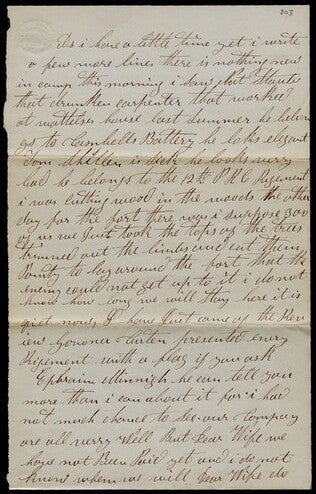 203
As i have a little time yet i wrote
a few more lines there is nothing new
in camp this morning i saw
that drunken carpenter that worked
at house last summer he belon
gs to Cambells Battery he loks elegant
Dom is sick he looks verry
bad he belongs to the 12th P R C Regement
i was cutting wood in the woods the other
day for the fort there was i suppose 300
of us we Just took the tops of the trees
trimed out the limbs and cut them
pointy to lay around the fort that the
enemy could not get up to it i do not
know how long we will stay here it is
quiet now, I have Just came of the Rev
iew Govoner Curten presented every
Regement with a flag if you ask
Ephraim Minnigh he can tell you
more than i can about it for i had
not much chance to see our Company
are all verry well But Dear Wife we
have not Been Paid yet and i do not
know when we will Dear Wife do